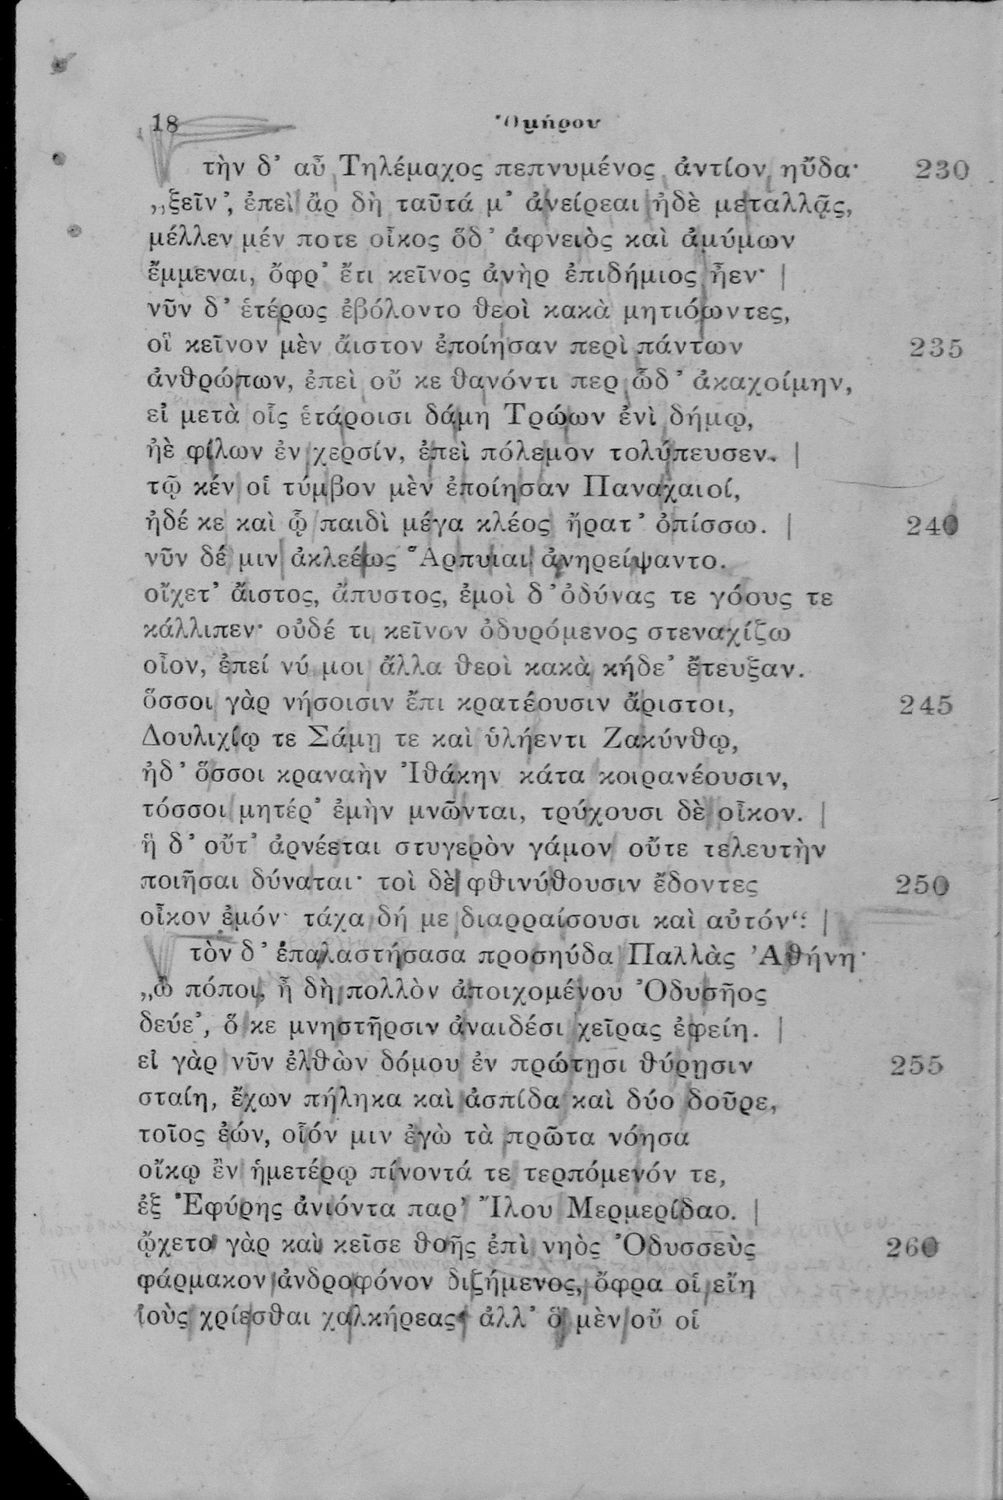 18 Ὁμήρου
τὴν δ’ αὖ Τηλέμαχος πεπνυμένος ἀντίον ηὔδα· 230
„ξεῖν’, ἐπεὶ ἂρ δὴ ταῦτά μ’ ἀνείρεαι ἠδὲ μεταλλᾷς,
μέλλεν μέν ποτε οἶκος ὅδ’ ἀφνειὸς καὶ ἀμύμων
ἔμμεναι, ὄφρ’ ἔτι κεῖνος ἀνὴρ ἐπιδήμιος ἦεν·
νῦν δ’ ἑτέρως ἐβόλοντο θεοὶ κακὰ μητιόωντες,
οἳ κεῖνον μὲν ἄιστον ἐποίησαν περὶ πάντων 235
ἀνθρώπων, ἐπεὶ οὔ κε θανόντι περ ὧδ’ ἀκαχοίμην,
εἰ μετὰ οἷς ἑτάροισι δάμη Τρώων ἐνὶ δήμῳ,
ἠὲ φίλων ἐν χερσίν, ἐπεὶ πόλεμον τολύπευσεν.
τῷ κέν οἱ τύμβον μὲν ἐποίησαν Παναχαιοί,
ἠδέ κε καὶ ᾧ παιδὶ μέγα κλέος ἤρατ’ ὀπίσσω. 240
νῦν δέ μιν ἀκλεέως Ἅρπυιαι ἀνηρείψαντο.
οἴχετ’ ἄιστος, ἄπυστος, ἐμοὶ δ’ ὀδύνας τε γόους τε
κάλλιπεν· οὐδέ τι κεῖνον ὀδυρόμενος στεναχίζω
οἶον, ἐπεί νύ μοι ἄλλα θεοὶ κακὰ κήδε’ ἔτευξαν.
ὅσσοι γὰρ νήσοισιν ἔπι κρατέουσιν ἄριστοι, 245
Δουλιχίῳ τε Σάμῃ τε καὶ ὑλήεντι Ζακύνθῳ,
ἠδ’ ὅσσοι κραναὴν Ἰθάκην κάτα κοιρανέουσιν,
τόσσοι μητέρ’ ἐμὴν μνῶνται, τρύχουσι δὲ οἶκον.
ἣ δ’ οὔτ’ ἀρνέεται στυγερὸν γάμον οὔτε τελευτὴν
ποιῆσαι δύναται· τοὶ δὲ φθινύθουσιν ἔδοντες 250
οἶκον ἐμόν· τάχα δή με διαρραίσουσι καὶ αὐτόν“.
τὸν δ’ ἐπαλαστήσασα προσηύδα Παλλὰς Ἀθήνη·
„ὢ πόποι, ἦ δὴ πολλὸν ἀποιχομένου Ὀδυσῆος
δεύε’, ὅ κε μνηστῆρσιν ἀναιδέσι χεῖρας ἐφείη.
εἰ γὰρ νῦν ἐλθὼν δόμου ἐν πρώτῃσι θύρῃσιν 255
σταίη, ἔχων πήληκα καὶ ἀσπίδα καὶ δύο δοῦρε,
τοῖος ἐών, οἷόν μιν ἐγὼ τὰ πρῶτα νόησα
οἴκῳ ἒν ἡμετέρῳ πίνοντά τε τερπόμενόν τε,
ἐξ Ἐφύρης ἀνιόντα παρ’ Ἴλου Μερμερίδαο.
ᾤχετο γὰρ καὶ κεῖσε θοῆς ἐπὶ νηὸς Ὀδυσσεὺς 260
φάρμακον ἀνδροφόνον διζήμενος, ὄφρα οἱ εἴη
ἰοὺς χρίεσθαι χαλκήρεας· ἀλλ’ ὃ μὲν οὔ οἱ